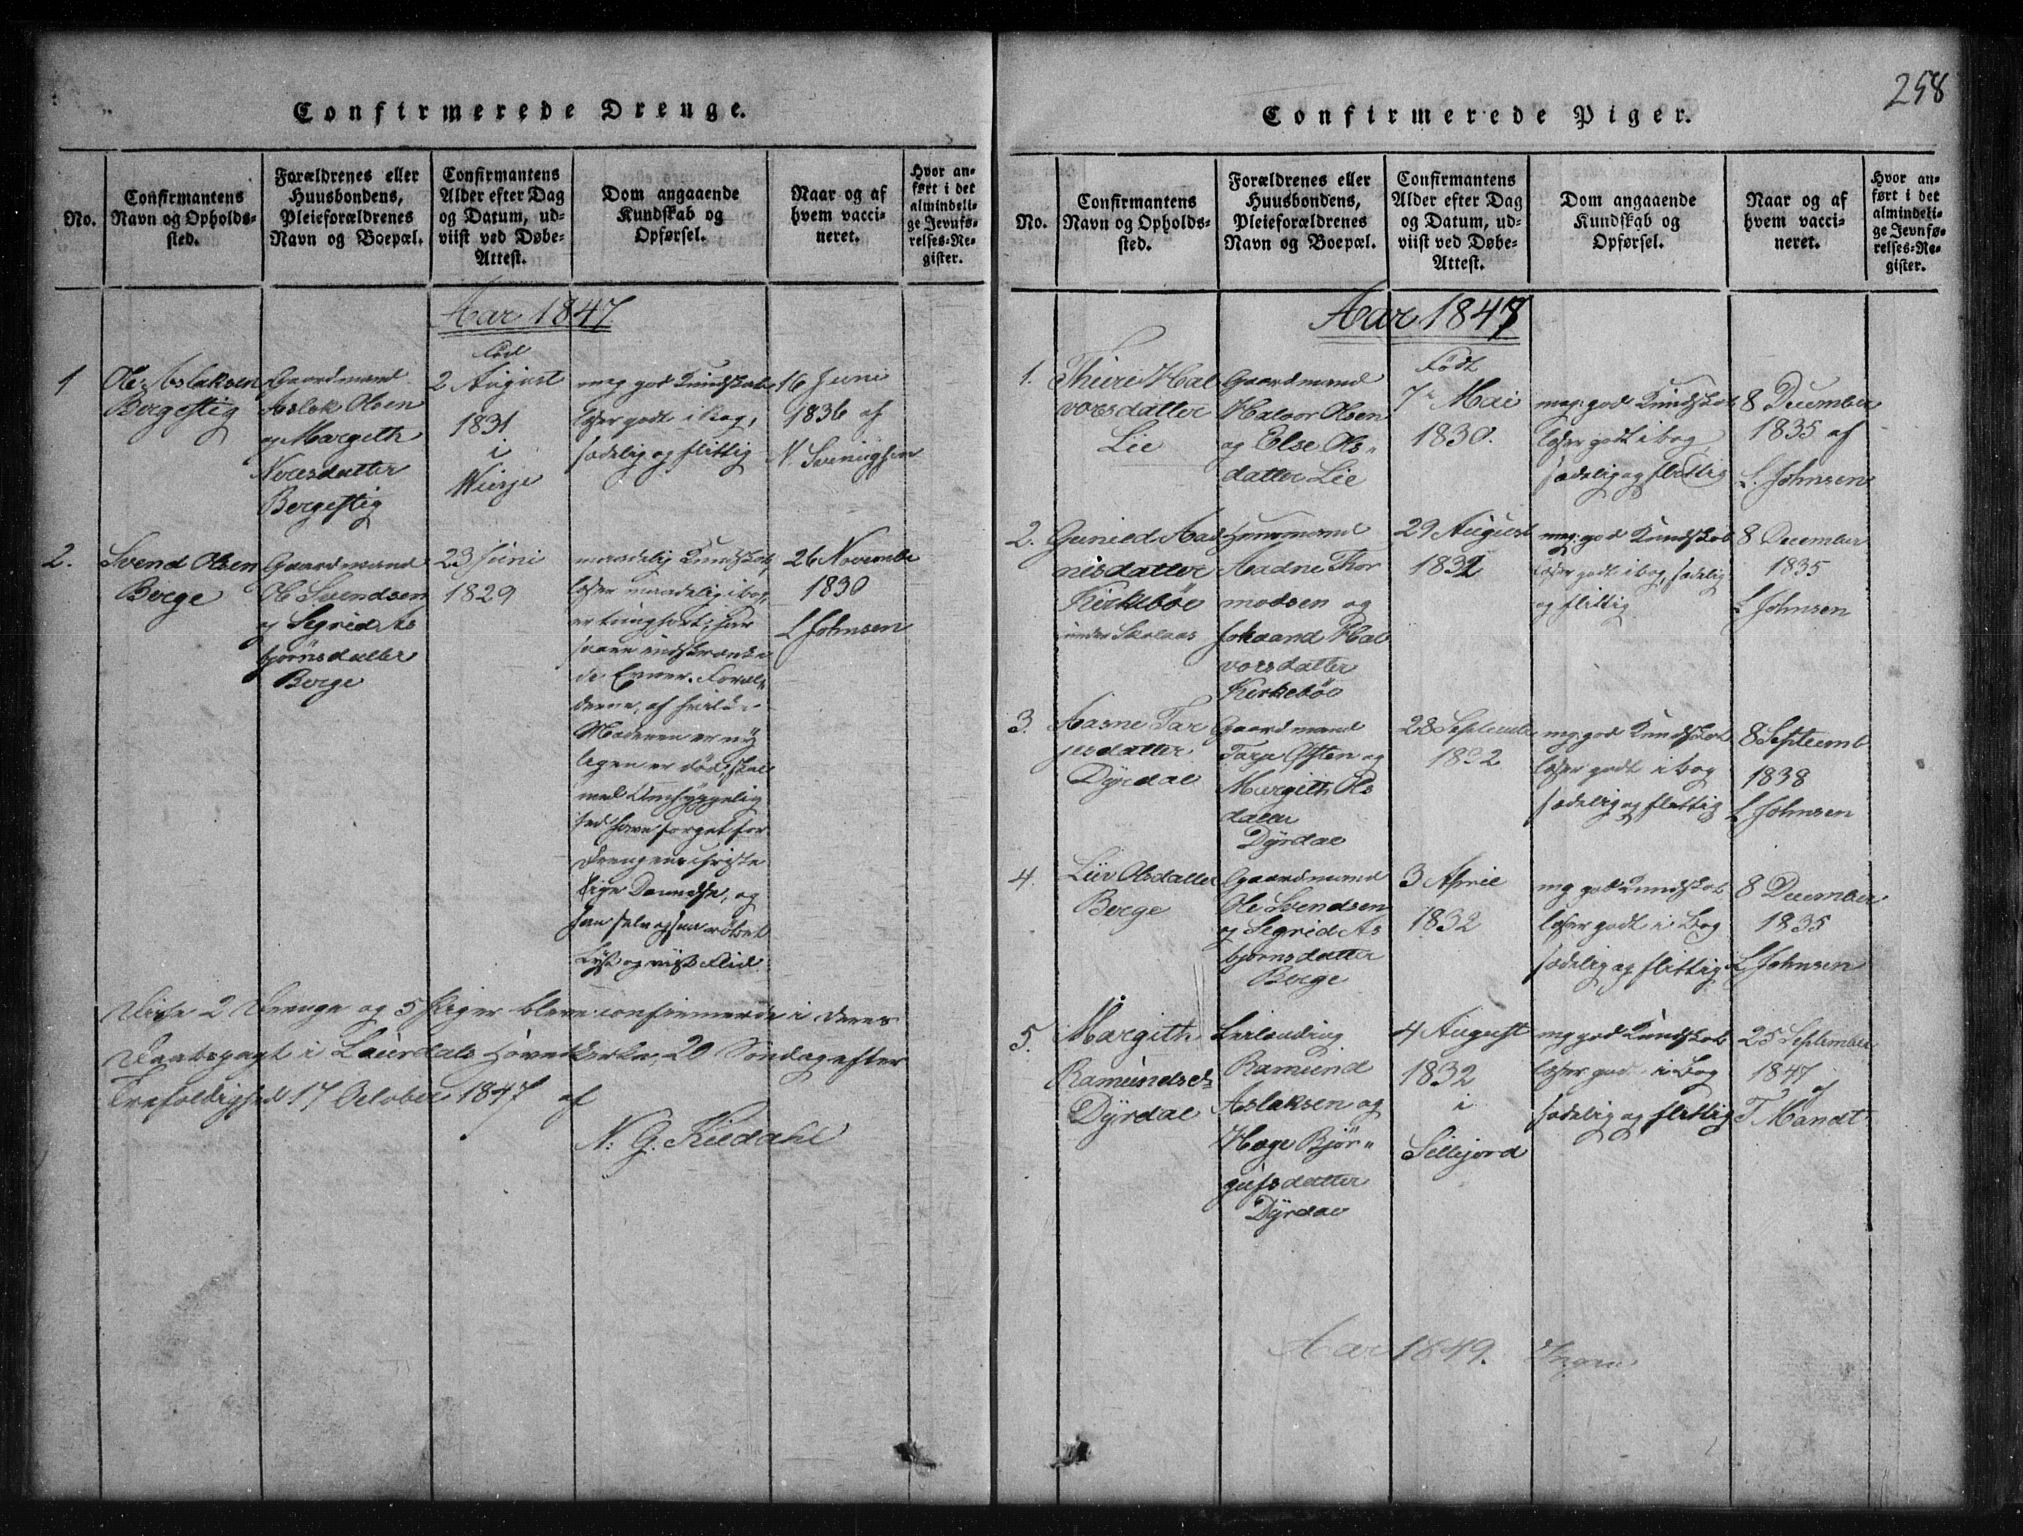 258
Confirmerede Drenge.
No.
Confirmantens
Navn og Opholds-
sted.
Forældrenes eller
Huusbondens,
Pleieforældrenes
Navn og Boepæl.
Confirmantens
Alder efter Dag
og Datum, ud-
viist ved Døbe-
Attest.
Dom angaaende
Kundskab og
Opførsel.
Naar og af
hvem vacci-
neret.
Hvor an-
ført i det
almindeli-
ge Jevnfø-
relses-Re-
gister.
Aar 1847
1
Ole Aslaksen
Bergestig
Gaardmand
Aslak Olsen
og Margeth
Bergestig
Född
2 August
1831
i
Winje
meg god Kundskab
læser godt i Bog,
sædelig og flittig
16 Juni
1836 af
N. Svenugsen
2.
Svend Olsen
Berge
Gaardmand
Ole Svendsen
og Segrid As
bjørnsdatter
Berge
23 Juni
1829
maadelig Kundskab,
læser maadelig i bog,
er tungfort; har
saare indskrænke
de Evner. Foræl-
drene, af hvilke
Moderen er ny
ligen er død, skal
med Omhyggelig
hed have sørget for
Drengens christe
lige Dannelse, og
han selv ogsaa
Lyst og viist Flid
26 Novembr
1830
L Johnsen
Disse 2 Drenge og 5 Piger bleve confirmerede i deres
Daabspagt i Laurdals Hovedkirke, 20 Søndag efter
Trefoldighed 17 October 1847 af
N. G. Kiedahl
Confirmerede Piger.
No.
Confirmantens
Navn og Opholds-
sted.
Forældrenes eller
Huusbondens,
Pleieforældrenes
Navn og Boepæl.
Confirmantens
Alder efter Dag
og Datum, ud-
viist ved Døbe-
Attest.
Dom angaaende
Kundskab og
Opførsel.
Naar og af
hvem vacci-
neret.
Hvor an-
ført i det
almindeli-
ge Jevnfø-
relses-Re-
gister.
Aar 1847
1.
Thuri Hal
vorsdatter
Lie
Gaardmand
Halvor Olsen
og Else Ols-
datter Lie
Født
7 Mai
1830.
meg: god Kundskab
læser godt i bog
sædelig og flittig
8 December
1835 af
L. Johnsen
2.
Gunild Aad
nesdatter
Kirkebøe
under Skolaas
Huusmand
Aadne Thor
modsen og
Johaand Hal
vorsdatter
Kirkebøe
29 August
1832
meg: god Kundskab
læser godt i bog, sædelig
og flittig
8 December
1835
L Johnsen
3.
Aasne Tar
jesdatter
Dÿrdal
Gaardmand
Tarje Olsen og
Margith Ols
datter
Dÿrdal
28 September
1832
mg: god Kundskab
læser godt i bog
sædelig og flittig
8 Septemb
1838
L Johnsen
4.
Liv Olsdatter
Berge
Gaardmand
Ole Svendsen
og Segrid As
bjørnsdatter
Berge
3 April
1832
mg god Kundskab
læser godt i Bog
sædelig og flittig
8 December
1835
L Johnsen
5.
Margith
Ramundsd
Dÿrdal
Leilending
Ramund
Aslaksen og
Hæge Bjør-
gufsdatter
Dÿrdal
4 August
1832
i
Sillejord
mg god Kundskab
læser godt i Bog
sædelig og flittig
25 September
1847
af
T. Mandt
Aar 1849. Ingen